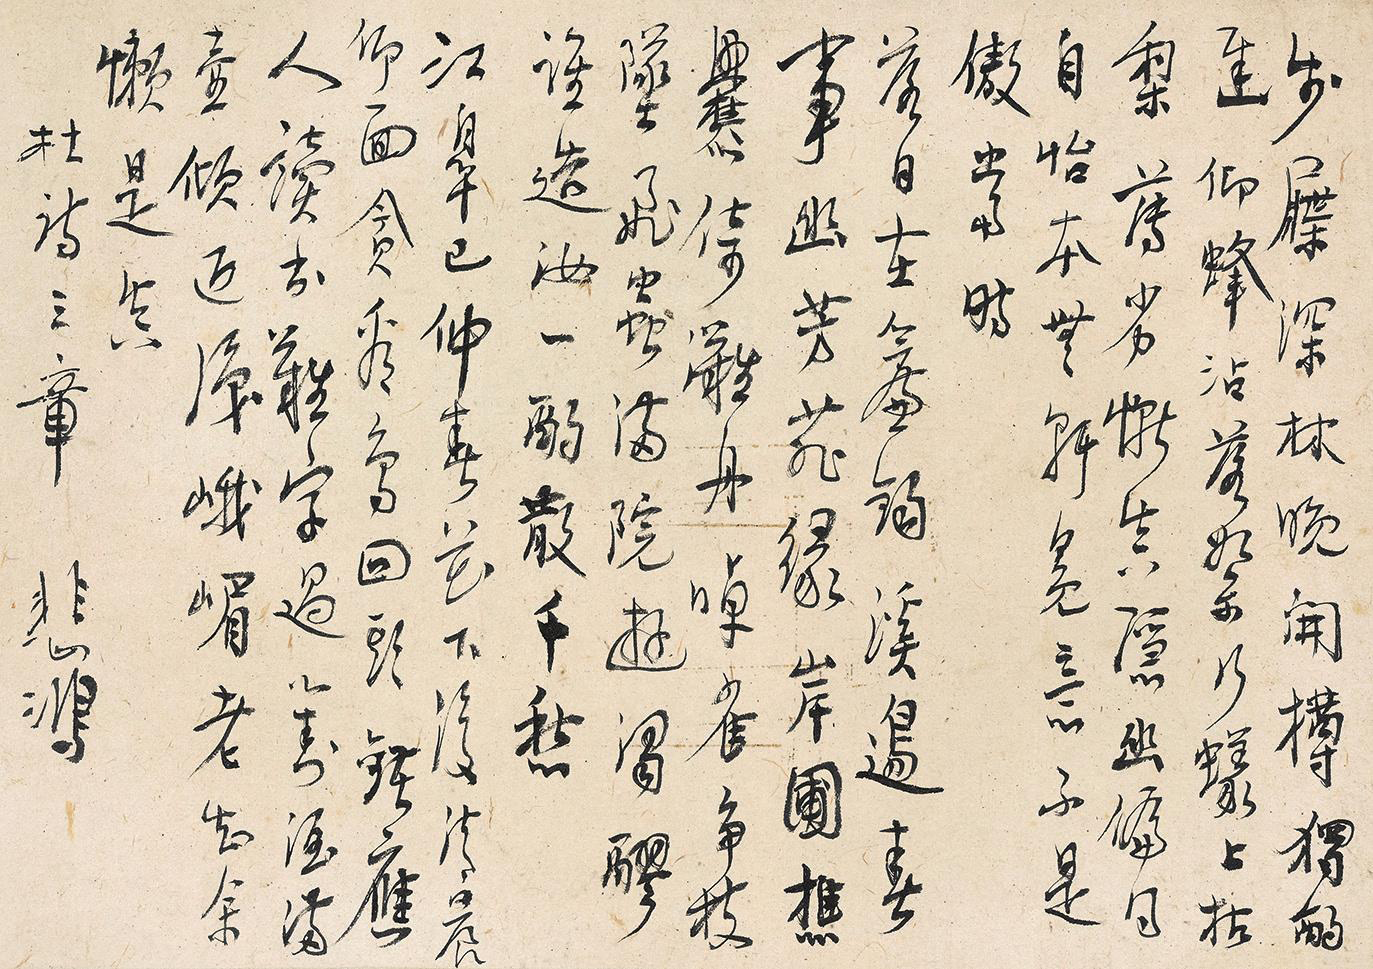 步屧深林晚開樽獨酌
遲仰蜂沾落絮行蟻上枯
梨薄劣慚真隱幽偏得
自怡本無軒冕意不是
傲當時
落日在簾鉤溪邊春
事幽芳菲緣岸圃樵
爨倚灘舟啅雀爭枝
墜飛蟲滿院遊濁醪
誰造汝一酌散千愁
江皋已仲春花下復清晨
仰面貪看鳥回頭錯應
人讀書難字過對酒滿
壺傾近識峨嵋老知余
懶是真
杜詩三章 悲鴻